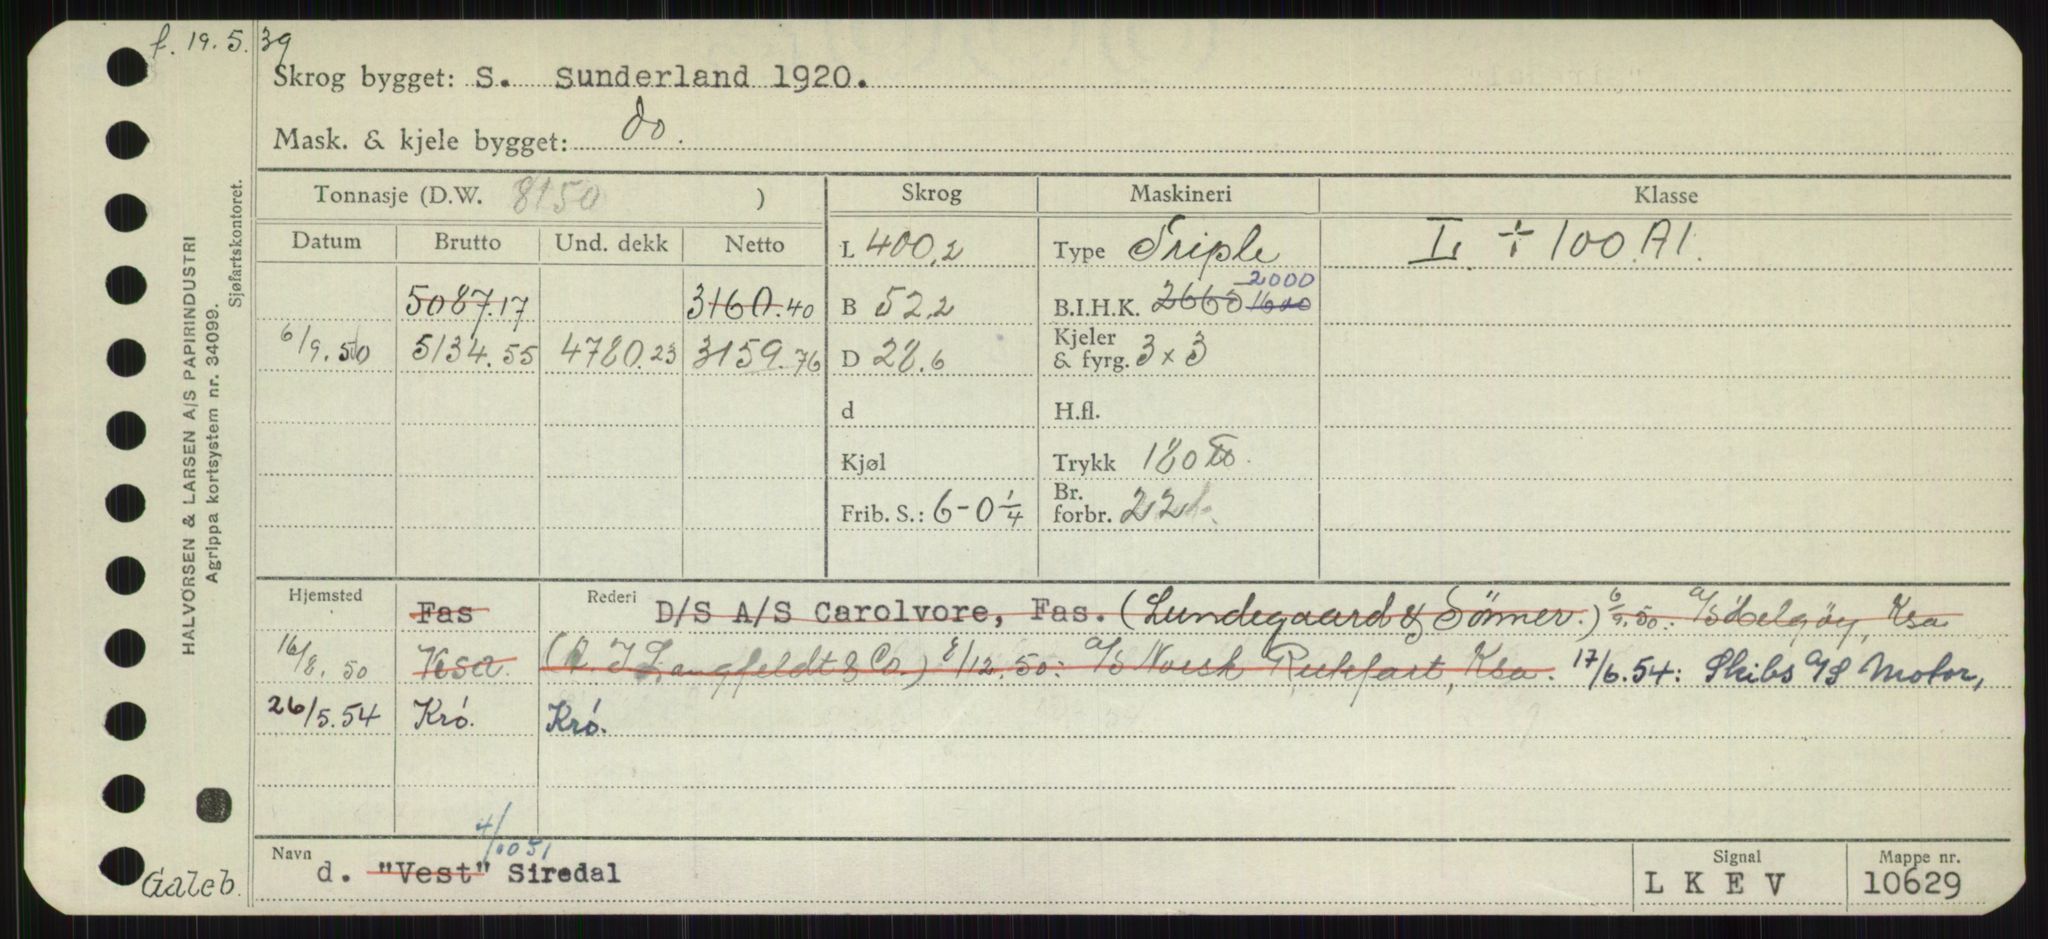 f. 19.5.39
Skrog bygget: S. Sunderland 1920.
Mask. & kjele bygget: do.
Tonnasje (D.W. 8150 )
Skrog
Maskineri
Klasse
Datum
Brutto
Und. dekk
Netto
L 400,2
Type Triple
L. ✢ 100.A1.
5087.17
3160.40
B 52,2
B.I.H.K. 2660 1600 2000
6/9.50
5134.55
4780.23
3159.76
D 28.6
Kjeler & fyrg. 3 x 3
d
H.fl.
Kjøl
Trykk 180
Frib. S.: 6-0 1/4
Br. forbr. 22
Hjemsted
Fas
Rederi D/S A/S Carolvore, Fas. (Lundegaard & Sönner.) 6/9.50: A/S Helgøy, Ksa
16/8.50 Ksa. (A. I. Langfeldt & Co.) 8/12.50: A/S Norsk Rutefart, Ksa. 17/6.54: Skibs A/S Motor,
26/5.54 Krö. Krö.
4/10 51
Navn d. "Vest" Siredal
Signal LKEV
Mappe nr. 10629
HALVORSEN & LARSEN A/S PAPIRINDUSTRI
Agrippa kortsystem nr. 34099.
Sjøfartskontoret.
Galeb.